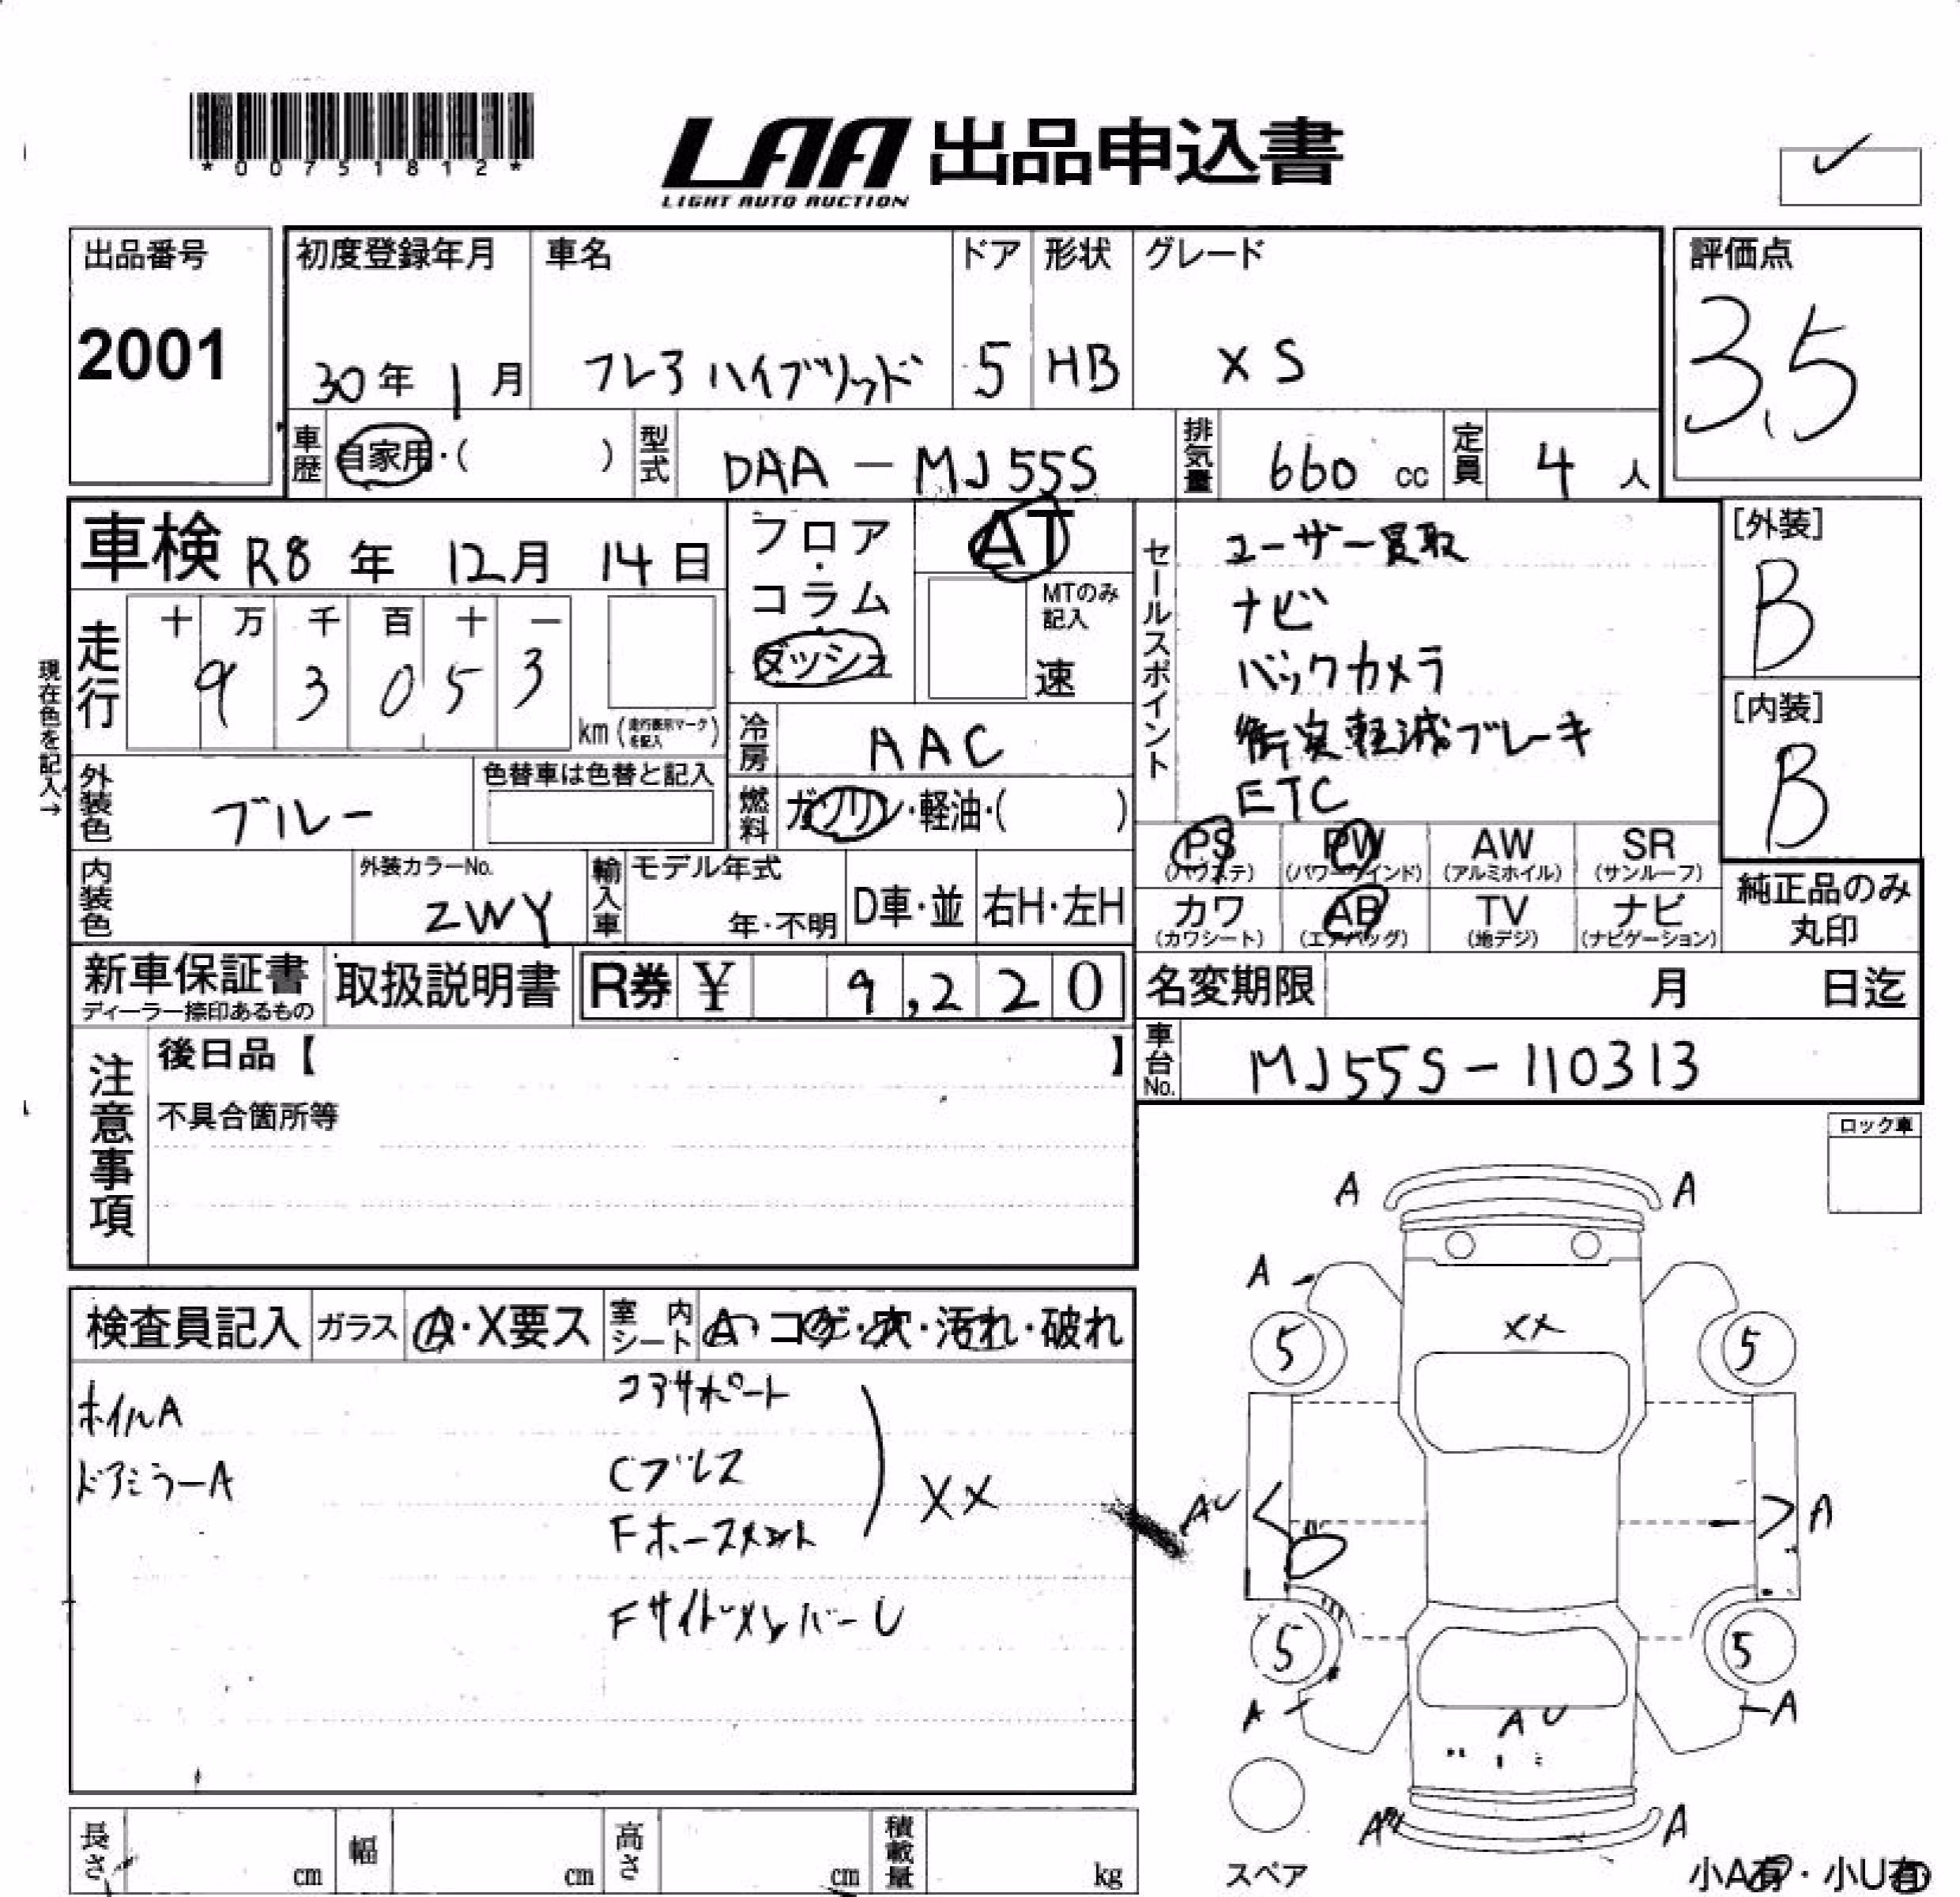 *00751812*
LAA 出品申込書
LIGHT AUTO AUCTION
出品番号
2001
初度登録年月
30年 1月
車名
フレア ハイブリッド
ドア
5
形状
HB
グレード
XS
評価点
3.5
車歴
自家用・( )
型式
DAA - MJ55S
排気量
660 cc
定員
4 人
車検 R8年 12月 14日
フロア・コラム・ダッシュ
AT
MTのみ記入
速
セールスポイント
ユーザー買取
ナビ
バックカメラ
衝突軽減ブレーキ
ETC
[外装]
B
[内装]
B
現在色を記入→
走行
十 万 千 百 十 一
9 3 0 5 3
km (走行表示マークを記入)
冷房
AAC
外装色
ブルー
色替車は色替と記入
燃料
ガソリン・軽油・( )
PS (パワステ)
PW (パワーウインド)
AW (アルミホイル)
SR (サンルーフ)
カワ (カワシート)
AB (エアバッグ)
TV (地デジ)
ナビ (ナビゲーション)
純正品のみ丸印
内装色
外装カラーNo.
ZWY
輸入車
モデル年式
年・不明
D車・並
右H・左H
新車保証書
ディーラー捺印あるもの
取扱説明書
R券 ¥ 9,220
名変期限 月 日迄
車台No.
MJ55S-110313
注意事項
後日品【 】
不具合箇所等
ロック車
検査員記入
ガラス
A・X要ス
室内シート
A・コゲ・穴・汚れ・破れ
ホイルA
ドアミラーA
コアサポート
Cブレス
Fホースメント
XX
FサイドメンバーU
A A
A
XX
5 5
AU A
5 5
A A
AU
A A
スペア
小A有・小U有
長さ cm
幅 cm
高さ cm
積載量 kg